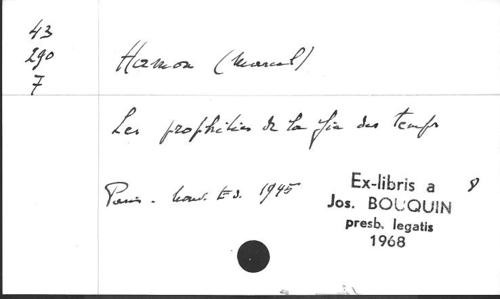 43
290
7
Hamon (Marcel)
Les prophéties de la fin des temps
Paris. Nouv. Ed. 1945
8
Ex-libris a
Jos. BOUQUIN
presb. legatis
1968